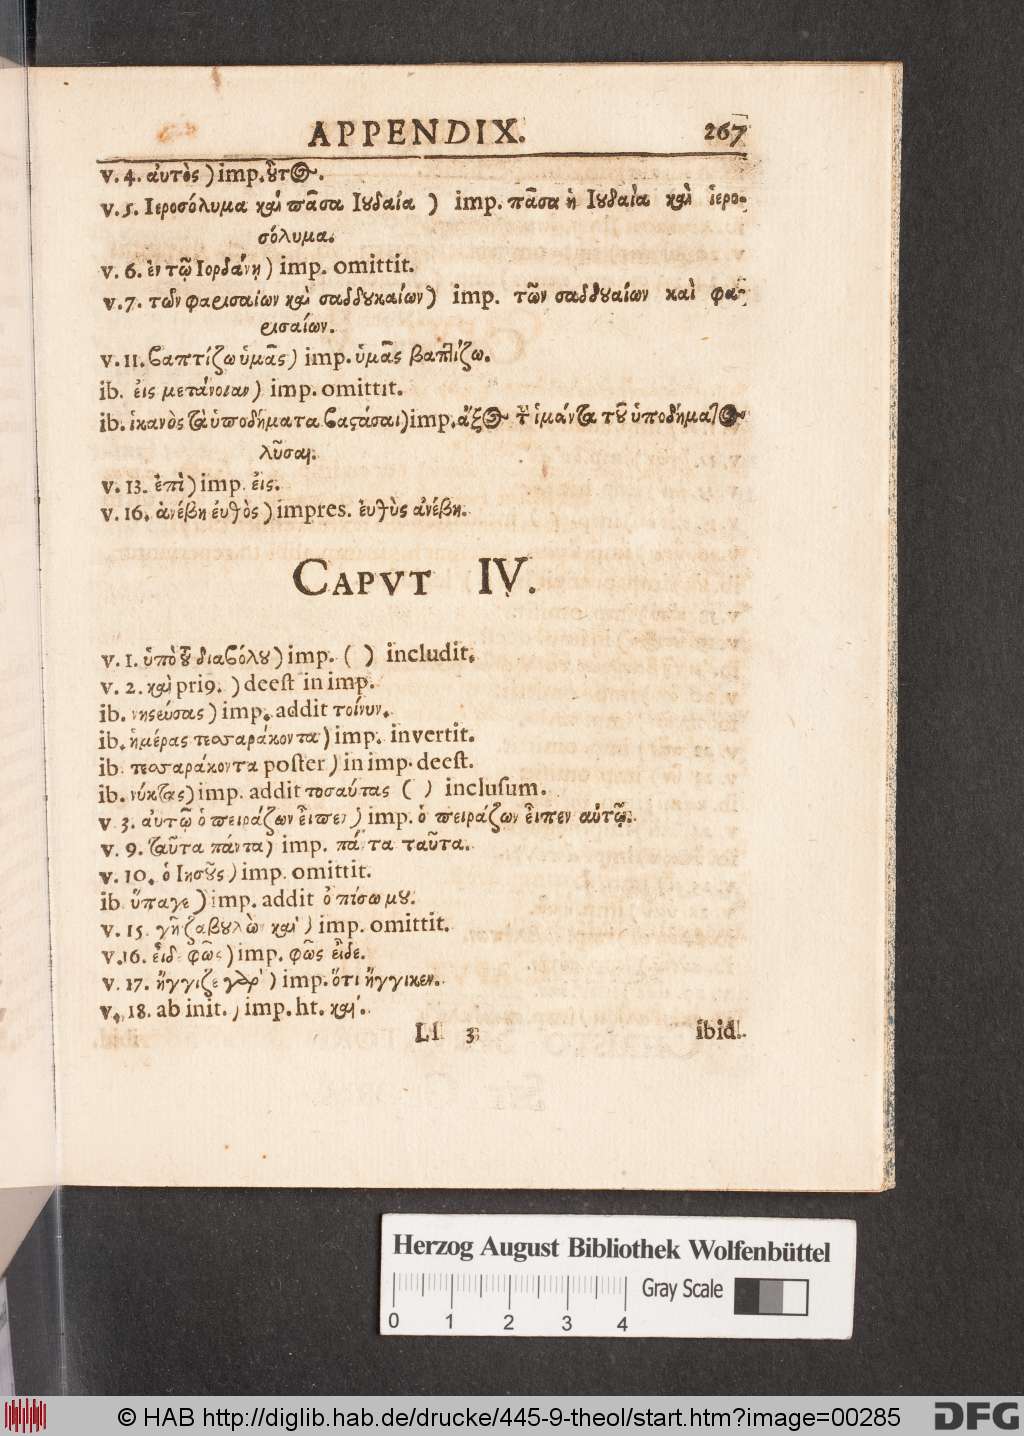 APPENDIX. 267
v. 4. ἀυτὸς ) imp. ȣ̓͂τος.
v. 5. Ιεροσόλυμα καὶ πᾶσα Ιȣδαία ) imp. πᾶσα ἡ Ιȣδαία καὶ ἱερο-
σόλυμα.
v. 6. ἐν τῷ Ιορδάνῃ ) imp. omittit.
v. 7. τῶν φαρισαίων καὶ σαδδȣκαίων ) imp. τῶν σαδδȣαίων καὶ φα-
ρισαίων.
v. 11. βαπτίζω ὑμᾶς ) imp. ὑμᾶς βαπτίζω.
ib. ἐις μετάνοιαν ) imp. omittit.
ib. ἱκανὸς τὰ ὑποδήματα βαςάσαι ) imp. ἄξιος τὸν ἱμάντα τȣ͂ ὑποδήματος
λῦσαι.
v. 13. ἐπὶ ) imp. ἐις.
v. 16. ἀνέβη ἐυθὸς ) impres. ἐυθὺς ἀνέβη.
CAPVT IV.
v. 1. ὑπὸ τȣ͂ διαβόλȣ ) imp. ( ) includit.
v. 2. καὶ pri9. ) deest in imp.
ib. νηςεύσας ) imp. addit τοίνυν.
ib. ἡμέρας τεσσαράκοντα ) imp. invertit.
ib. τεσσαράκοντα poster ) in imp. deest.
ib. νύκτας ) imp. addit τοσαύτας ( ) inclusum.
v. 3. ἀυτῷ ὁ πειράζων ἔιπεν ) imp. ὁ πειράζων ἔιπεν αὐτῷ.
v. 9. ταῦτα πάντα ) imp. πάντα ταῦτα.
v. 10. ὁ Ιησȣ͂ς ) imp. omittit.
ib. ὕπαγε ) imp. addit ὀπίσω μȣ.
v. 15. γῆ ζαβȣλὼν καὶ ) imp. omittit.
v. 16. ἔιδε φῶς ) imp. φῶς ἔιδε.
v. 17. ἤγγιζε γὰρ ) imp. ὅτι ἤγγικεν.
v. 18. ab init. ) imp. ht. καὶ.
Ll 3 ibid.
Herzog August Bibliothek Wolfenbüttel
Gray Scale
0 1 2 3 4
© HAB http://diglib.hab.de/drucke/445-9-theol/start.htm?image=00285 DFG